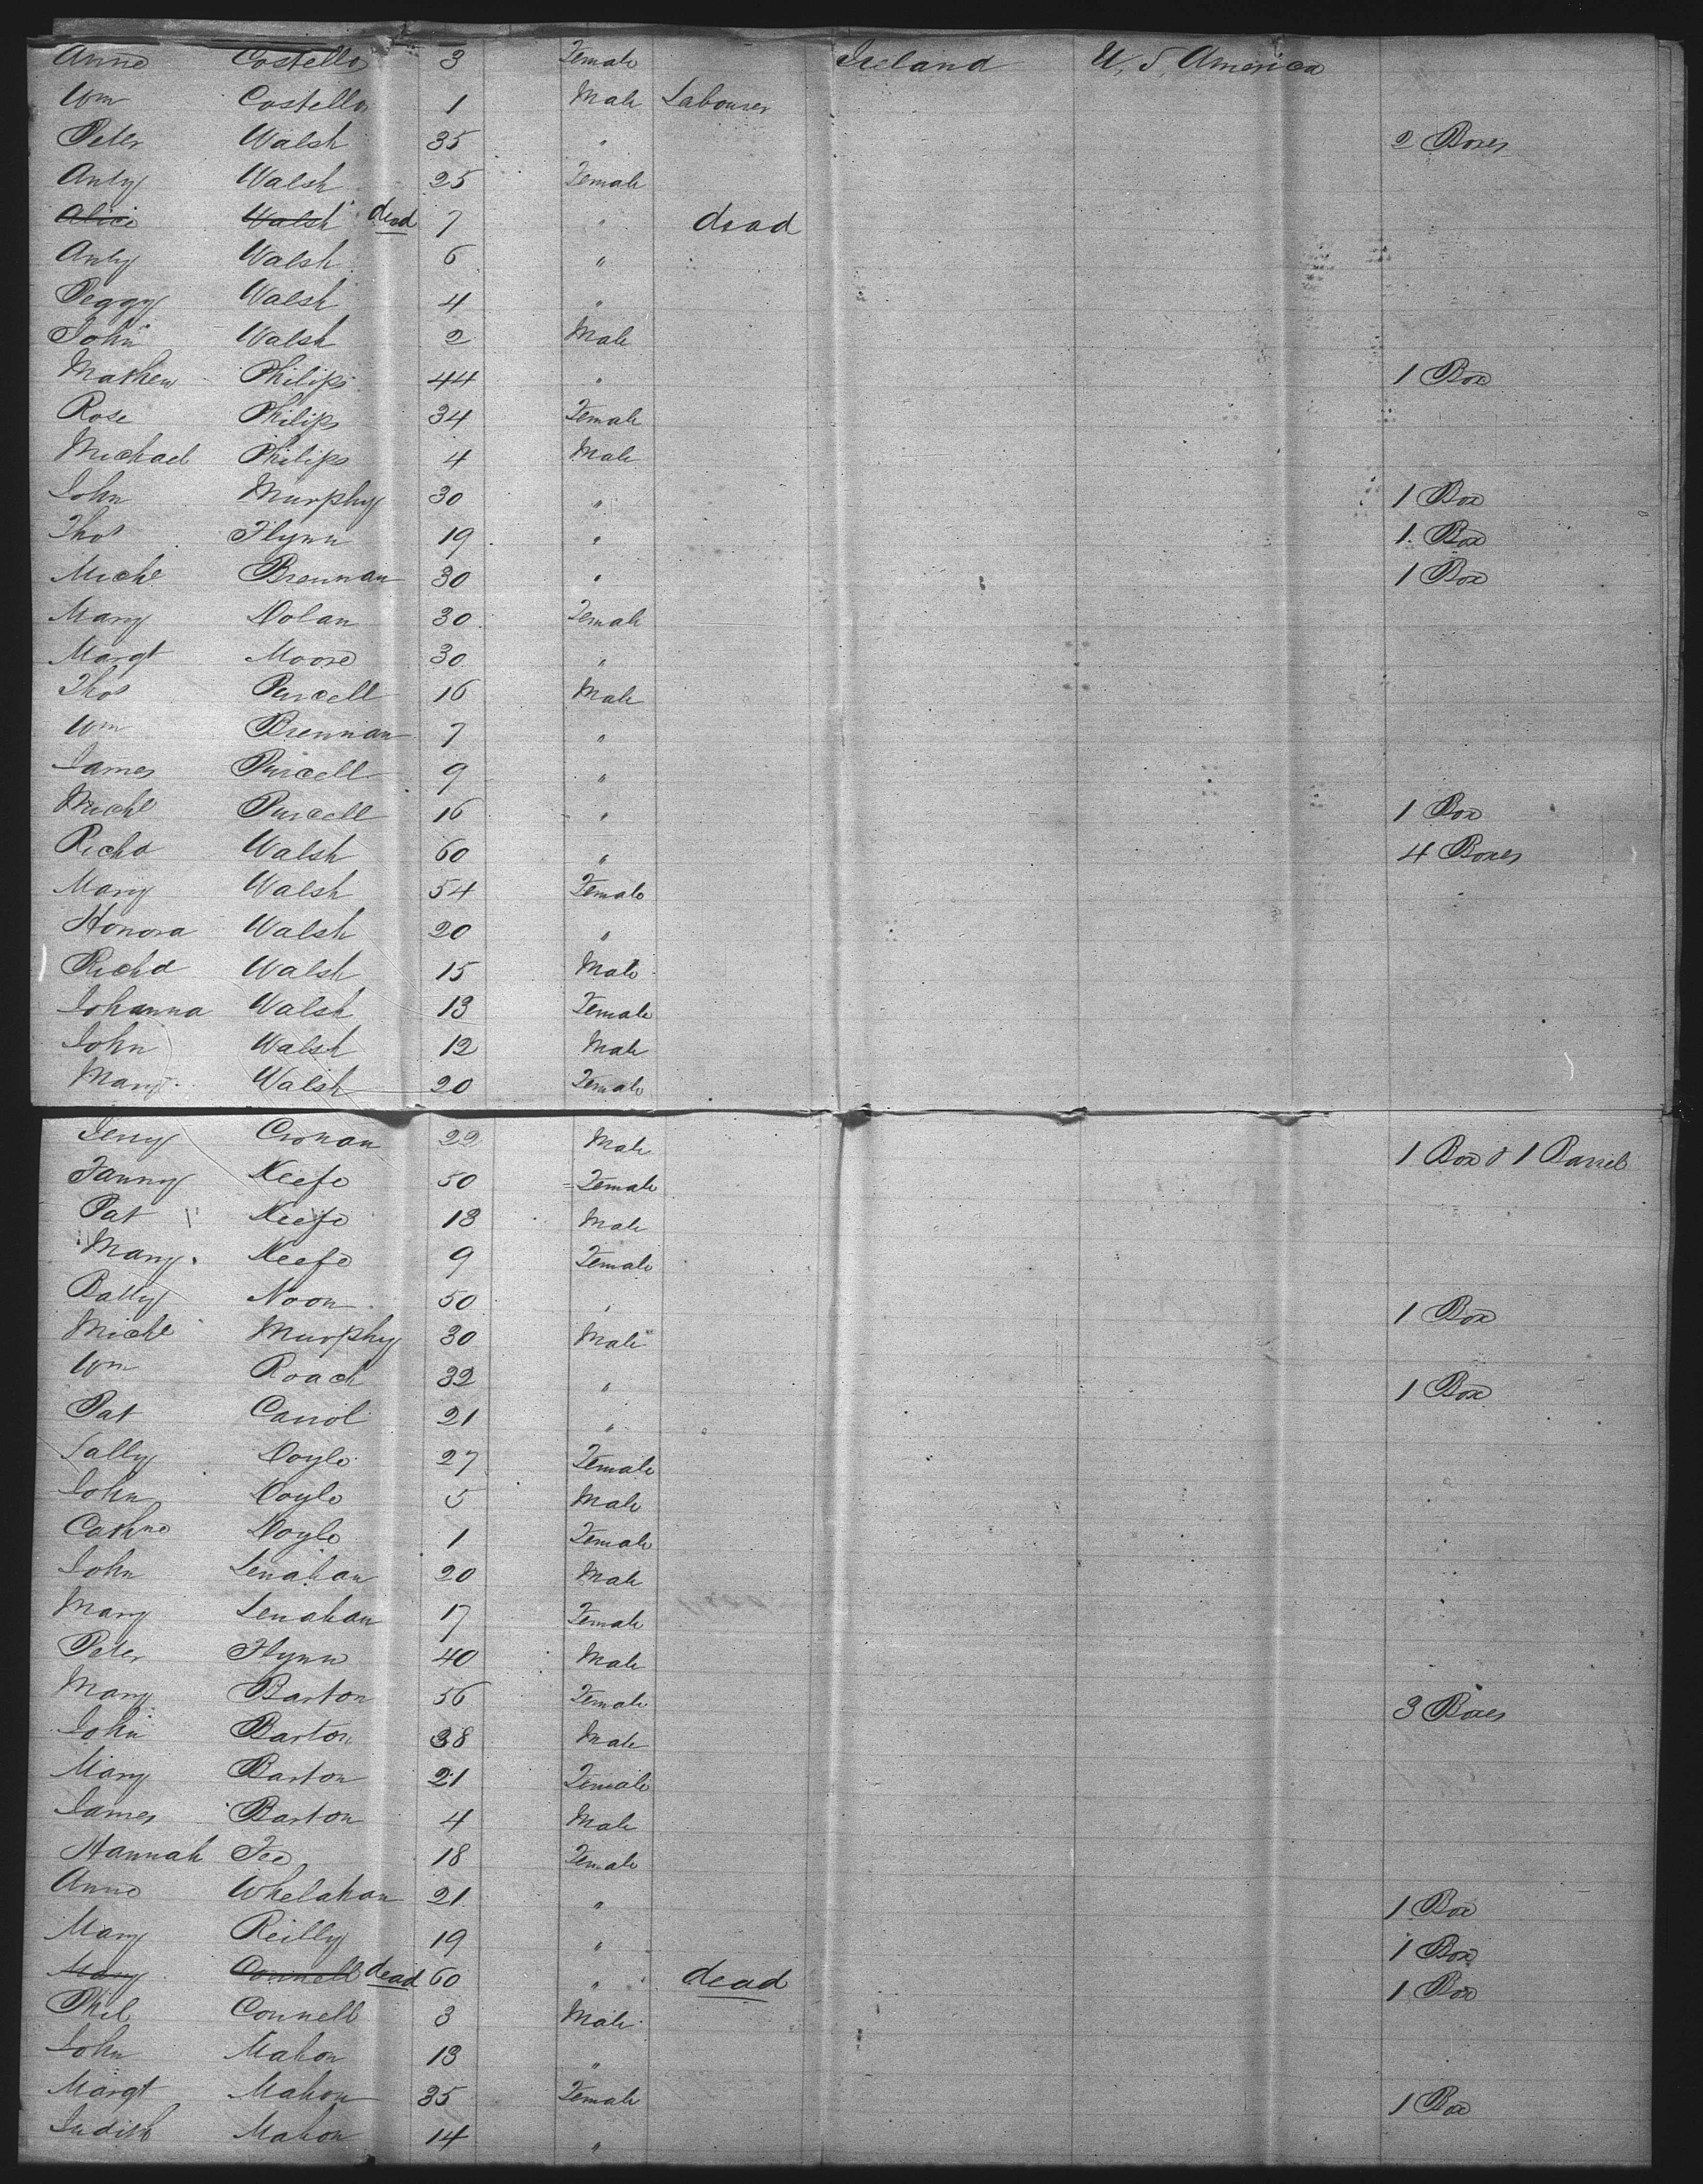 Anne Costello 3 Female Ireland U.S. America
Wm Costello 1 Male Labourer
Peter Walsh 35 " 2 Boxes
Anty Walsh 25 Female
Alice Walsh dead 7 " dead
Anty Walsh 6 "
Peggy Walsh 4 "
John Walsh 2 Male
Mathew Philips 44 " 1 Box
Rose Philips 34 Female
Michael Philips 4 Male
John Murphy 30 " 1 Box
Thos Flynn 19 " 1 Box
Michl Brennan 30 " 1 Box
Mary Dolan 30 Female
Margt Moore 30 "
Thos Purcell 16 Male
Wm Brennan 7 "
James Purcell 9 "
Michl Purcell 16 " 1 Box
Richd Walsh 60 " 4 Boxes
Mary Walsh 54 Female
Honora Walsh 20 "
Richd Walsh 15 Male
Johanna Walsh 13 Female
John Walsh 12 Male
Mary Walsh 20 Female
Jerry Cronan 22 Male 1 Box & 1 Barrel
Fanny Keefe 50 Female
Pat Keefe 13 Male
Mary Keefe 9 Female
Batty Noon 50 " 1 Box
Michl Murphy 30 Male
Wm Roach 32 " 1 Box
Pat Carrol 21 "
Sally Doyle 27 Female
John Doyle 5 Male
Cathne Doyle 1 Female
John Lenahan 20 Male
Mary Lenahan 17 Female
Peter Flynn 40 Male
Mary Barton 56 Female 3 Boxes
John Barton 38 Male
Mary Barton 21 Female
James Barton 4 Male
Hannah Fee 18 Female
Anne Whelahan 21 " 1 Box
Mary Reilly 19 " 1 Box
Mary Connell dead 60 " dead 1 Box
Phil Connell 3 Male
John Mahon 13 "
Margt Mahon 35 Female 1 Box
Judith Mahon 14 "